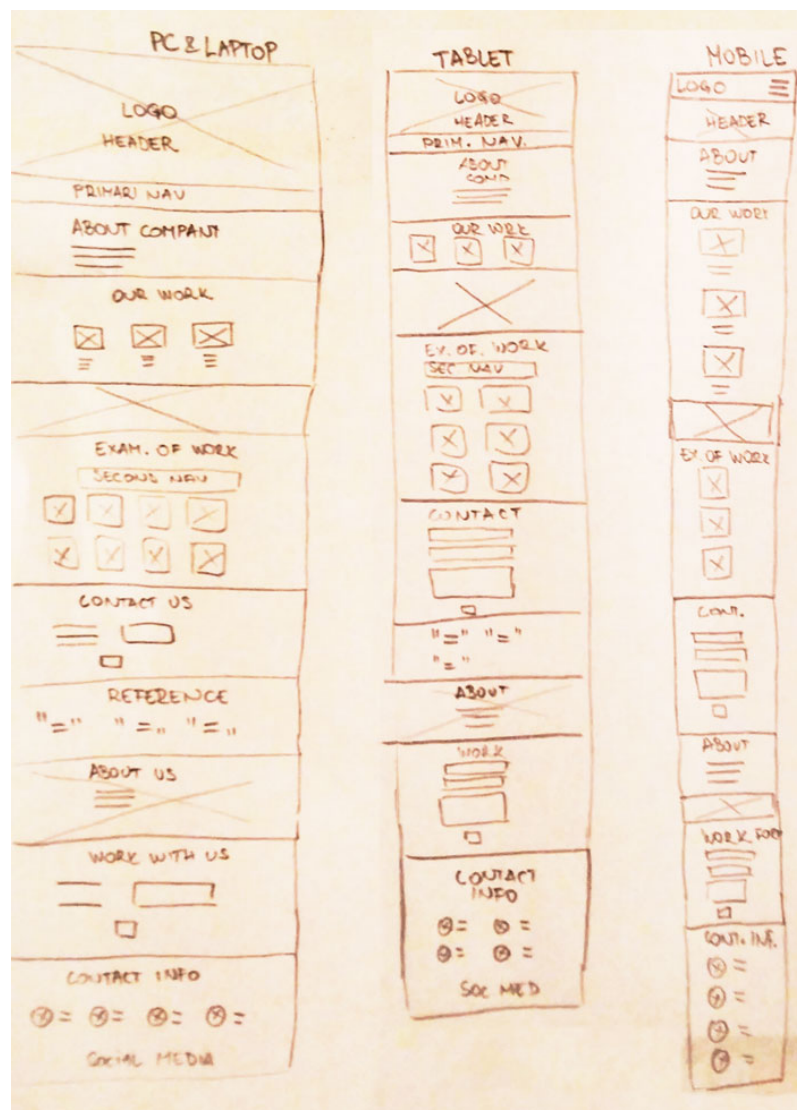 PC & LAPTOP
LOGO
HEADER
PRIMARI NAV
ABOUT COMPANY
OUR WORK
EXAM. OF WORK
SECOND NAV
CONTACT US
REFERENCE
"=" "=„ "=„
ABOUT US
WORK WITH US
CONTACT INFO
SOCIAL MEDIA
TABLET
LOGO
HEADER
PRIM. NAV.
ABOUT
COMP
OUR WORK
EX. OF. WORK
SEC NAV
CONTACT
"=" "="
"="
ABOUT
WORK
CONTACT
INFO
SOC MED
MOBILE
LOGO
HEADER
ABOUT
OUR WORK
EX. OF WORK
CONT.
ABOUT
WORK
CONT. INF.